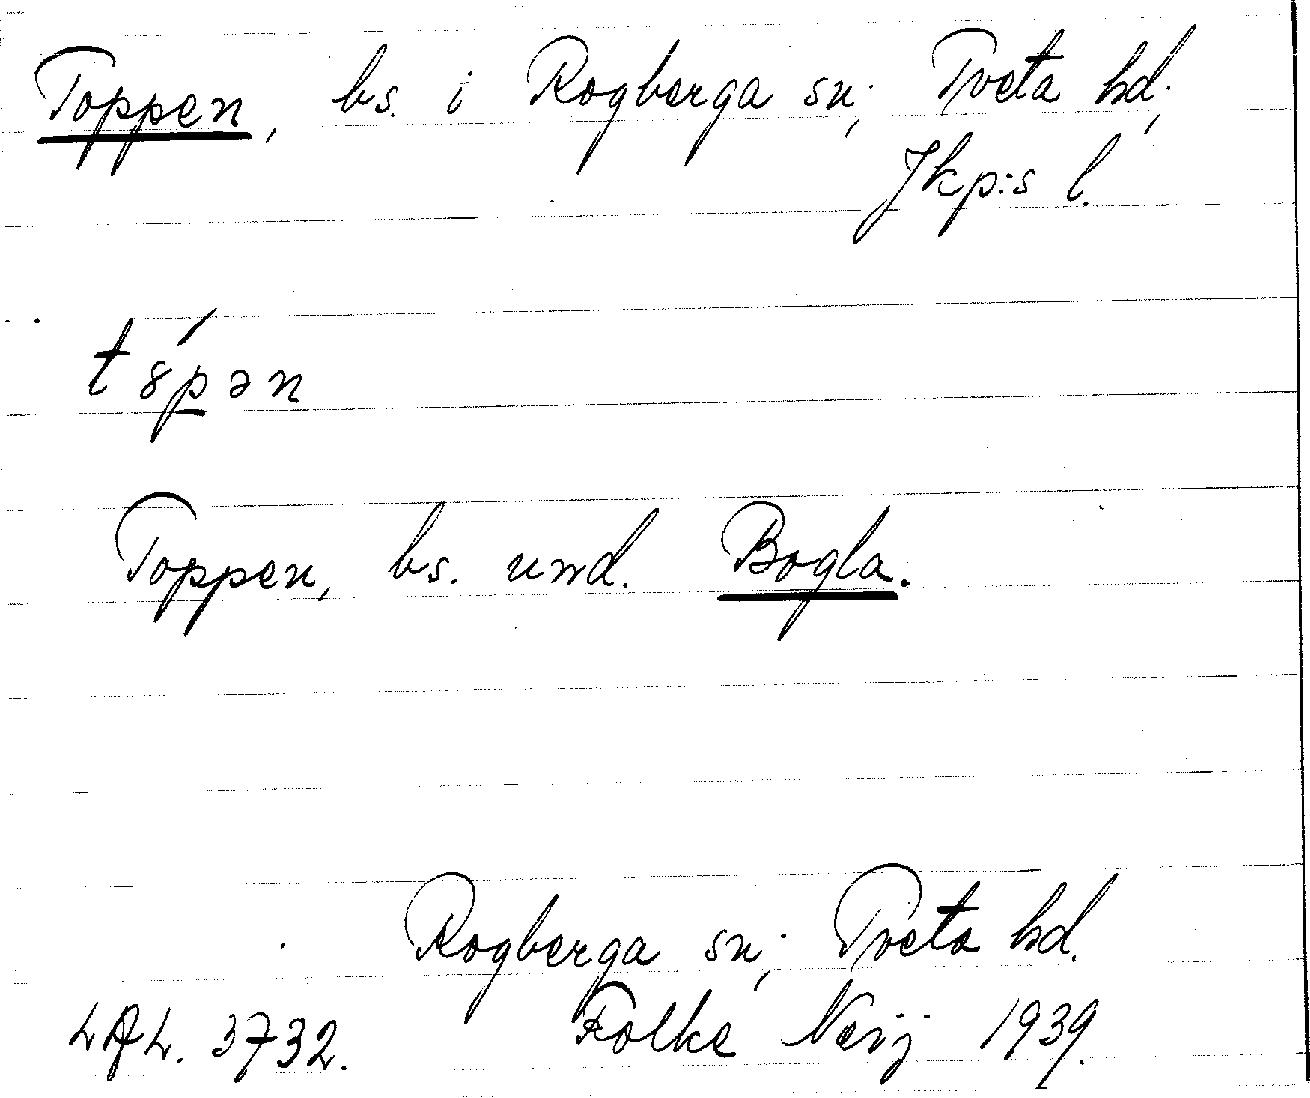 Toppen, bs. i Rogberga sn., Tveta hd.,
Jkp:s l.
t 8́pən
Toppen, bs. und. Bogla.
Rogberga sn., Tveta hd.
LAL. 3732. Folke Neij 1939.